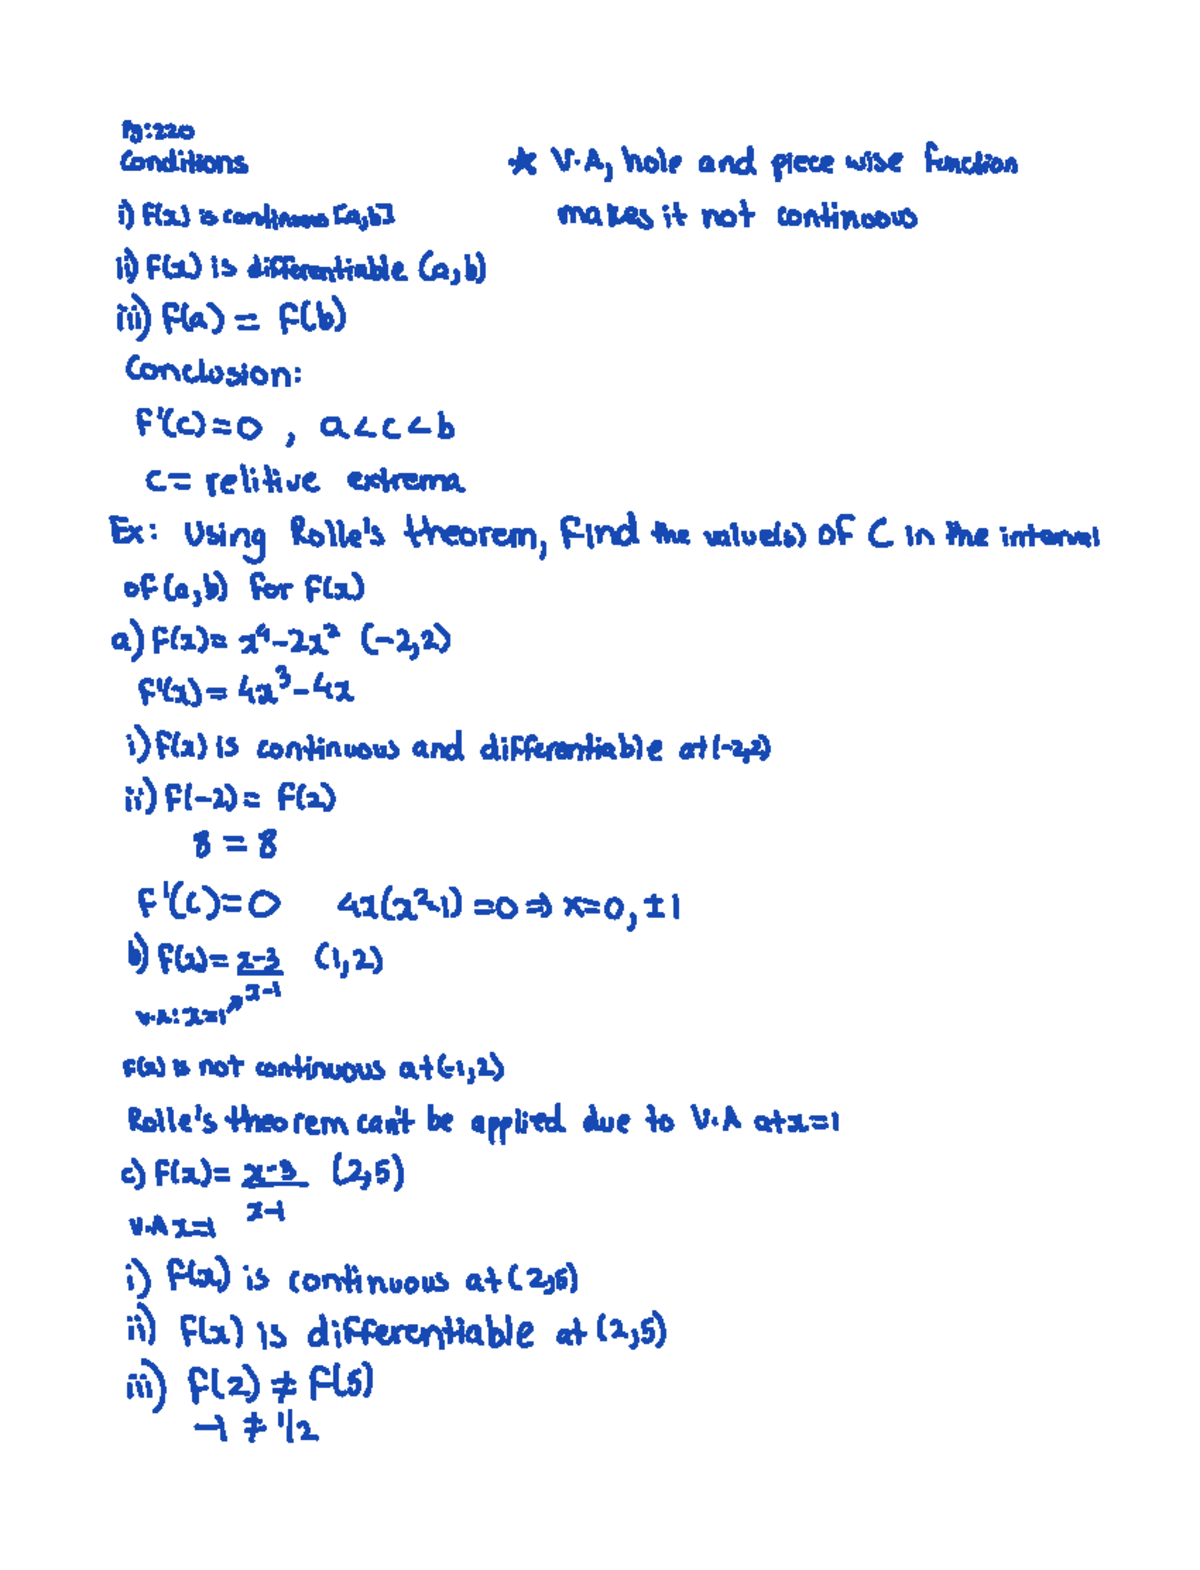 Pg:220
Conditions
* V.A, hole and piece wise function
makes it not continoous
i) F(x) is continuous [a,b]
ii) F(x) is differentiable (a,b)
iii) F(a) = F(b)
Conclusion:
F'(c)=0 , a<c<b
c= relitive extrema
Ex: Using Rolle's theorem, Find the value(s) of C in the interval
of (a,b) for F(x)
a) F(x)= x⁴-2x² (-2,2)
F'(x) = 4x³-4x
i) F(x) is continuous and differentiable at (-2,2)
ii) F(-2) = F(2)
8 = 8
F'(c)=0 4x(x²-1) =0 ⇒ x=0, ±1
b) F(x)= x-3 (1,2)
x-1
V.A: x=1
F(x) is not continuous at (-1,2)
Rolle's theorem can't be applied due to V.A at x=1
c) F(x)= x-3 (2,5)
x-1
V.A x=1
i) F(x) is continuous at (2,5)
ii) F(x) is differentiable at (2,5)
iii) F(2) ≠ F(5)
-1 ≠ 1/2